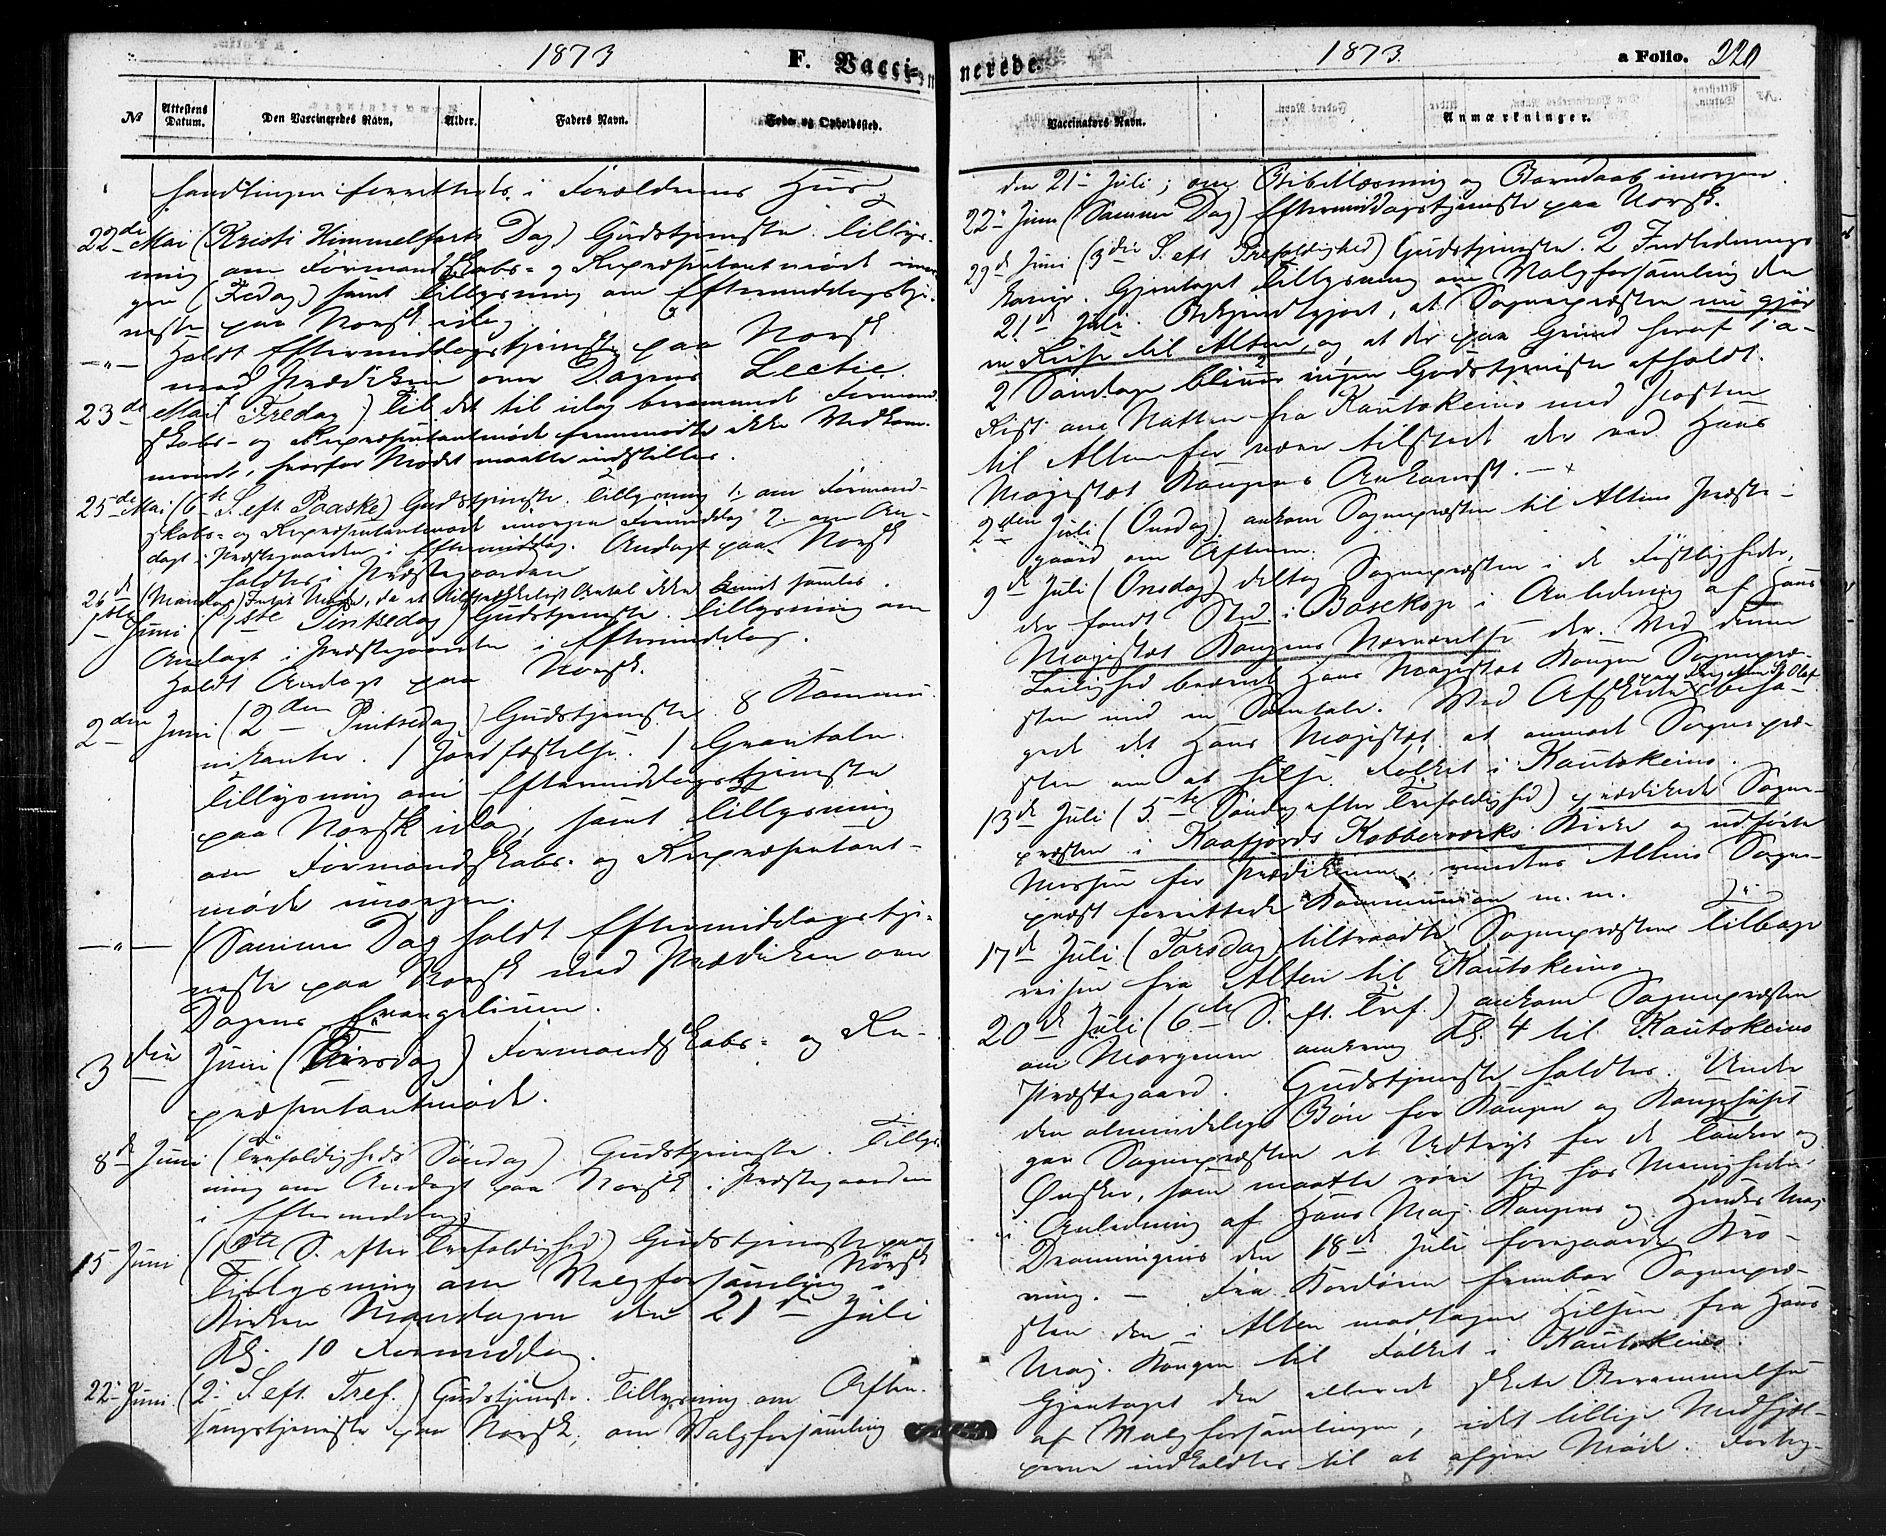 1873 F. Vacci-
№ Attestens Datum. Den Vaccineredes Navn. Alder. Faders Navn. Føde- og Opholdssted.
handlingen forrettedes i Forældrenes Hus
22de Mai (Kristi Himmelfarts Dag) Gudstjeneste. Tillys-
ning om Formandskabs- og Repræsentantmøde imor-
gen (Fredag) samt Tillysning om Eftermiddagstje-
neste paa Norsk idag
—„— Holdt Eftermiddagstjeneste paa Norsk
med Prædiken over Dagens Lectie.
23de Mai (Fredag) Til det til idag berammede Formand-
skabs- og Repræsentantmøde fremmødte ikke Vedkom-
mende, hvorfor Mødet maatte indstilles.
25de Mai (6te S. eft. Paaske) Gudstjeneste. Tillysning 1. om Formand-
skabs- og Repræsentantmøde imorgen Formiddag 2. om An-
dagt i Præstegaarden i Eftermiddag. Andagt paa Norsk
holdtes i Præstegaarden
26de (Mandag) Intet Møde, da et tilstrækkeligt Antal ikke kunde samles.
1ste Juni (1ste Pintsedag) Gudstjeneste. Tillysning om
Andagt i Præstegaarden i Eftermiddag.
Holdt Andagt paa Norsk.
2den Juni (2den Pintsedag) Gudstjeneste. 8 Kommu-
nikanter. 1 Jordfæstelse. 1 Gravtale.
Tillysning om Eftermiddagstjeneste
paa Norsk idag, samt Tillysning
om Formandskabs- og Repræsentant-
møde imorgen.
—„— (Samme Dag) holdt Eftermiddagstje-
neste paa Norsk med Prædiken over
Dagens Evangelium.
3die Juni (Tirsdag) Formandskabs- og Re-
præsentantmøde.
8de Juni (Trefoldigheds Søndag) Gudstjeneste. Tillys-
ning om Andagt paa Norsk i Præstegaarden
i Eftermiddag.
15 Juni (1ste S. efter Trefoldighed) Gudstjeneste paa Norsk
Tillysning om Valgforsamling i
Kirken Mandagen den 21de Juli
Kl. 10 Formiddag.
22. Juni (2. S. eft. Tref.) Gudstjeneste. Tillysning om Aften-
sangstjeneste paa Norsk; om Valgforsamling
nerede. 1873. a Folio. 220
Vaccinators Navn. Anmærkninger.
den 21. Juli; om Bibellæsning og Barndaab imorgen.
22. Juni (Samme Dag) Eftermiddagstjeneste paa Norsk.
29de Juni (3die S. eft. Trefoldighed) Gudstjeneste. 2 Indlednings-
koner. Gjentaget Tillysning om Valgforsamling den
21de Juli. Bekjendtgjort, at Sognepræsten nu gjør
en Reise til Alten, og at der paa Grund heraf 1 a
2 Søndage bliver ingen Gudstjeneste afholdt.
Reist om Natten fra Kautokeino med Posten
til Alten for at være tilstede der ved Hans
Majestæt Kongens Ankomst. —
2den Juli (Onsdag) ankom Sognepræsten til Altens Præste-
gaard om Aftenen.
9de Juli (Onsdag) deltog Sognepræsten i de Festligheder,
der fandt Sted i Bosekop i Anledning af Hans
Majestæt Kongens Nærværelse der. Ved denne
Leilighed beærede Hans Majestæt Kongen Sognepræ-
sten med en Samtale. Ved Afskeden beha-
gede det Hans Majestæt at anmode Sognepræ-
sten om at hilse Folket i Kautokeino.
13de Juli (5te Søndag efter Trefoldighed) prædikede Sogne-
præsten i Kaafjords Kobberværks Kirke og udførte
Messen for Prædikenen, medens Altens Sogne-
præst forrettede Kommunion m. m.
17de Juli (Torsdag) tiltraadte Sognepræsten Tilbage-
reisen fra Alten til Kautokeino
20de Juli (6te S. eft. Tref.) ankom Sognepræsten
om Morgenen omkring Kl. 4 til Kautokeino
Præstegaard. Gudstjeneste holdtes. Under
den almindelige Bøn for Kongen og Kongehuset
gav Sognepræsten et Udtryk for de Tanker og
Ønsker, som maatte røre sig hos Menigheden
i Anledning af Hans Maj. Kongens og Hendes Maj.
Dronningens den 18de Juli foregaaede Kro-
ning. — Fra Kordøren frembar Sognepræ-
sten den i Alten modtagne Hilsen fra Hans
Maj. Kongen til Folket i Kautokeino.
Gjentaget den allerede skete Berammelse
af Valgforsamlingen, idet tillige Medhjæl-
perne indkaldtes til at afgive Møde. Forøv-